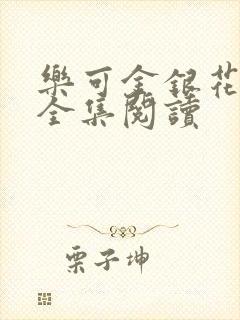 樂可金銀花
全集閱讀
栗子坤